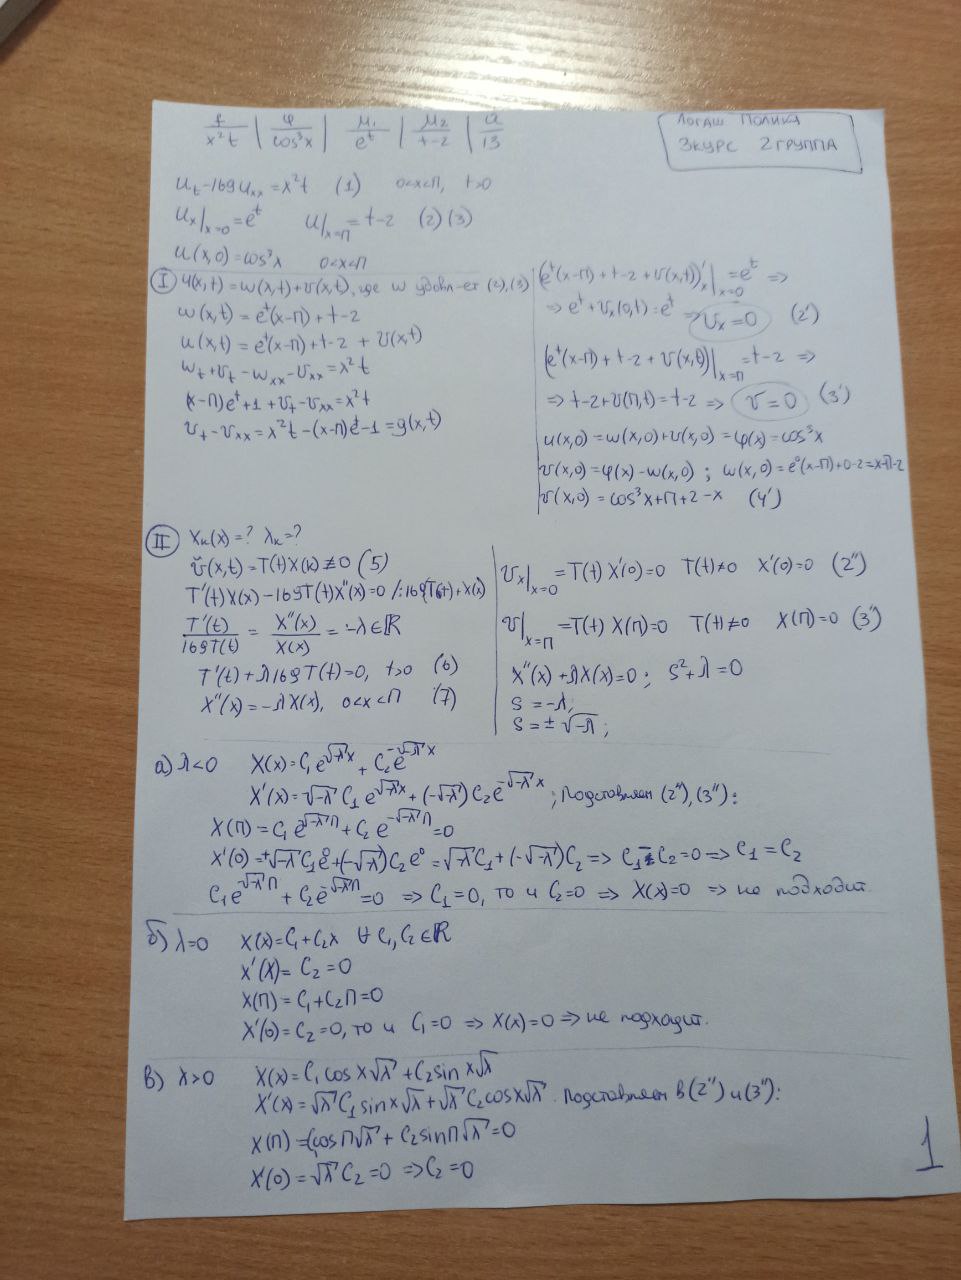 f/x²t | φ/cos³x | μ₁/eᵗ | μ₂/t-2 | a/13
Логаш Полина
3 курс 2 группа
u_t - 169 u_xx = x²t (1) 0<x<π, t>0
u_x|_{x=0} = eᵗ u|_{x=π} = t-2 (2)(3)
u(x,0) = cos³x 0<x<π
I u(x,t) = w(x,t) + v(x,t), где w удовл-ет (2),(3)
w(x,t) = eᵗ(x-π) + t-2
u(x,t) = eᵗ(x-π) + t-2 + v(x,t)
w_t + v_t - w_xx - v_xx = x²t
(x-π)eᵗ + 1 + v_t - v_xx = x²t
v_t - v_xx = x²t - (x-π)eᵗ - 1 = g(x,t)
(eᵗ(x-π) + t-2 + v(x,t))'_x|_{x=0} = eᵗ ⇒
⇒ eᵗ + v_x(0,t) = eᵗ ⇒ v_x = 0 (2')
(eᵗ(x-π) + t-2 + v(x,t))|_{x=π} = t-2 ⇒
⇒ t-2 + v(π,t) = t-2 ⇒ v = 0 (3')
u(x,0) = w(x,0) + v(x,0) = φ(x) = cos³x
v(x,0) = φ(x) - w(x,0); w(x,0) = e⁰(x-π) + 0-2 = x-π-2
v(x,0) = cos³x + π + 2 - x (4')
II X_k(x) = ? λ_k = ?
ṽ(x,t) = T(t)X(x) ≢ 0 (5)
T'(t)X(x) - 169T(t)X''(x) = 0 /:169T(t)+X(x)
T'(t)/169T(t) = X''(x)/X(x) = -λ ∈ ℝ
T'(t) + λ169T(t) = 0, t>0 (6)
X''(x) = -λX(x), 0<x<π (7)
v_x|_{x=0} = T(t)X'(0) = 0 T(t)≠0 X'(0) = 0 (2'')
v|_{x=π} = T(t)X(π) = 0 T(t)≠0 X(π) = 0 (3'')
X''(x) + λX(x) = 0; s² + λ = 0
s = -λ;
s = ±√-λ;
а) λ<0 X(x) = C₁e^{√-λ x} + C₂e^{-√-λ x}
X'(x) = √-λ C₁e^{√-λ x} + (-√-λ)C₂e^{-√-λ x}; Подставляем (2''),(3''):
X(π) = C₁e^{√-λ π} + C₂e^{-√-λ π} = 0
X'(0) = +√-λ C₁e⁰ + (-√-λ)C₂e⁰ = √-λ C₁ + (-√-λ)C₂ ⇒ C₁ - C₂ = 0 ⇒ C₁ = C₂
C₁e^{√-λ π} + C₂e^{-√-λ π} = 0 ⇒ C₁ = 0, то и C₂ = 0 ⇒ X(x) = 0 ⇒ не подходит.
б) λ=0 X(x) = C₁ + C₂x ∀ C₁, C₂ ∈ ℝ
X'(x) = C₂ = 0
X(π) = C₁ + C₂π = 0
X'(0) = C₂ = 0, то и C₁ = 0 ⇒ X(x) = 0 ⇒ не подходит.
в) λ>0 X(x) = C₁cos x√λ + C₂sin x√λ
X'(x) = √λ C₁ sin x√λ + √λ C₂ cos x√λ Подставляем в (2'') и (3''):
X(π) = C₁cos π√λ + C₂sin π√λ = 0
X'(0) = √λ C₂ = 0 ⇒ C₂ = 0
1